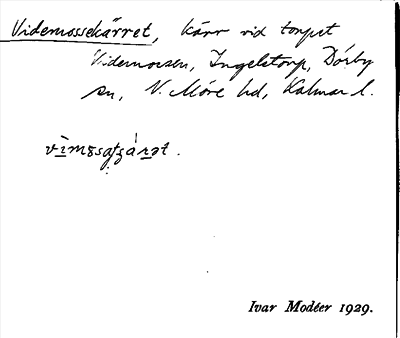 Videmossekärret, Kärr vid torpet
Videmossen, Ingeletorp, Dörby
sn, N. Möre hd, Kalmar l.
Ivar Modéer 1929.